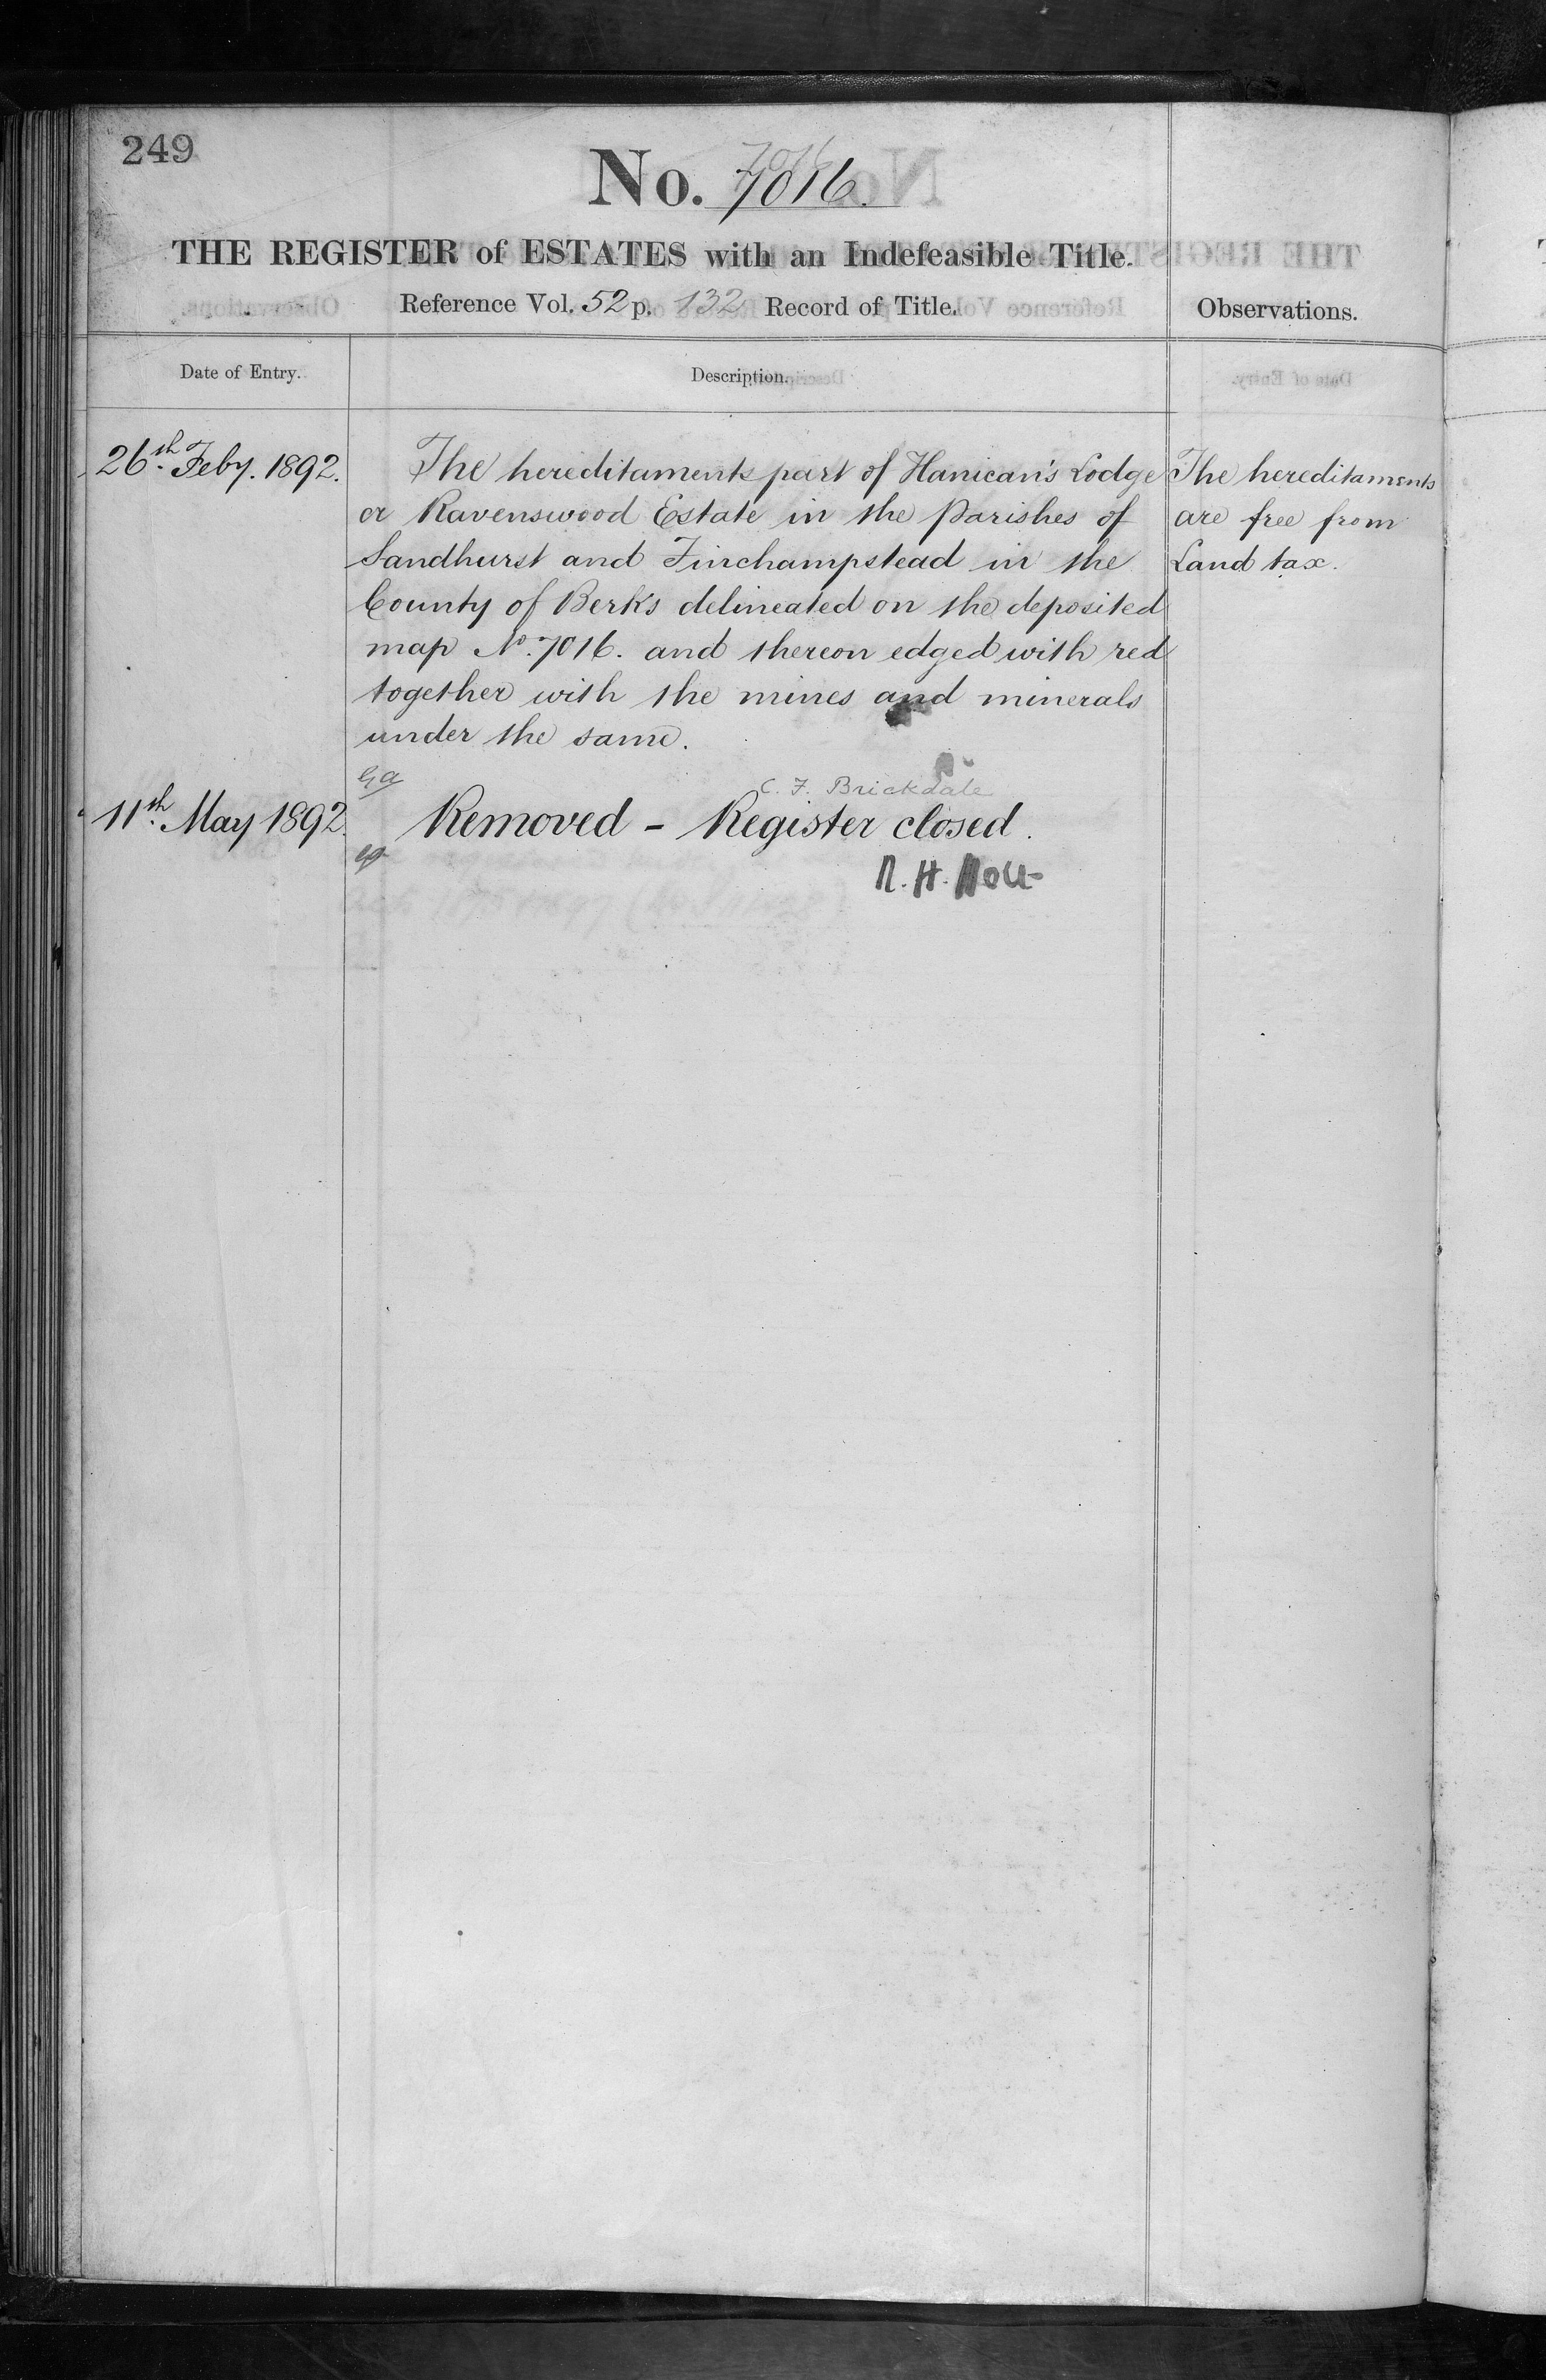 249
No. 7016.
7016
THE REGISTER of ESTATES with an Indefeasible Title.
Reference Vol. 52 p. 132 Record of Title.
Observations.
Date of Entry.
Description.
26th Feby. 1892.
The hereditaments part of Hanican's Lodge
or Ravenswood Estate in the Parishes of
Sandhurst and Finchampstead in the
County of Berks delineated on the deposited
map No. 7016. and thereon edged with red
together with the mines and minerals
under the same.
The hereditaments
are free from
Land tax.
C. F. Brickdale
11th May 1892.
Removed - Register closed.
R. H. Holt